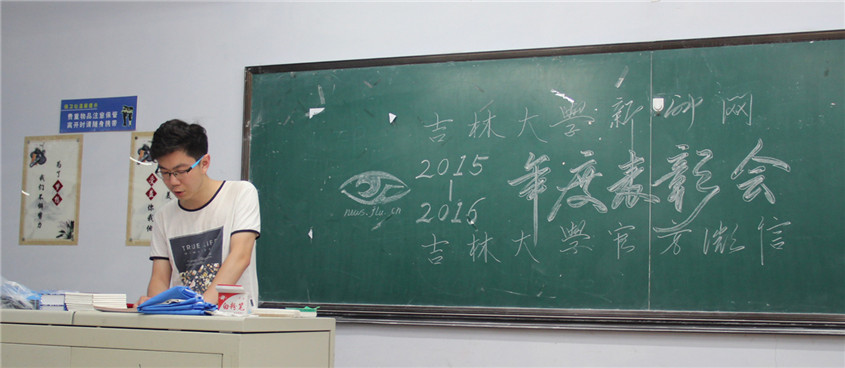 贵重物品注意保管
离开时请随身携带
为了
我们
TRUE LIFE
吉林大學新闻网
2015
|
2016
年度表彰会
news.jlu.cn
吉林大學官方微信